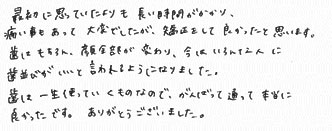 最初に思っていたよりも長い時間がかかり、
痛い事とあって大変でしたが、矯正をして良かったと思います。
歯はもちろん、顔全部が変わり、今はいろんな人に
歯並びがいいと言われるようになりました。
歯は一生使っていくものなので、がんばって通って本当に
良かったです。ありがとうございました。